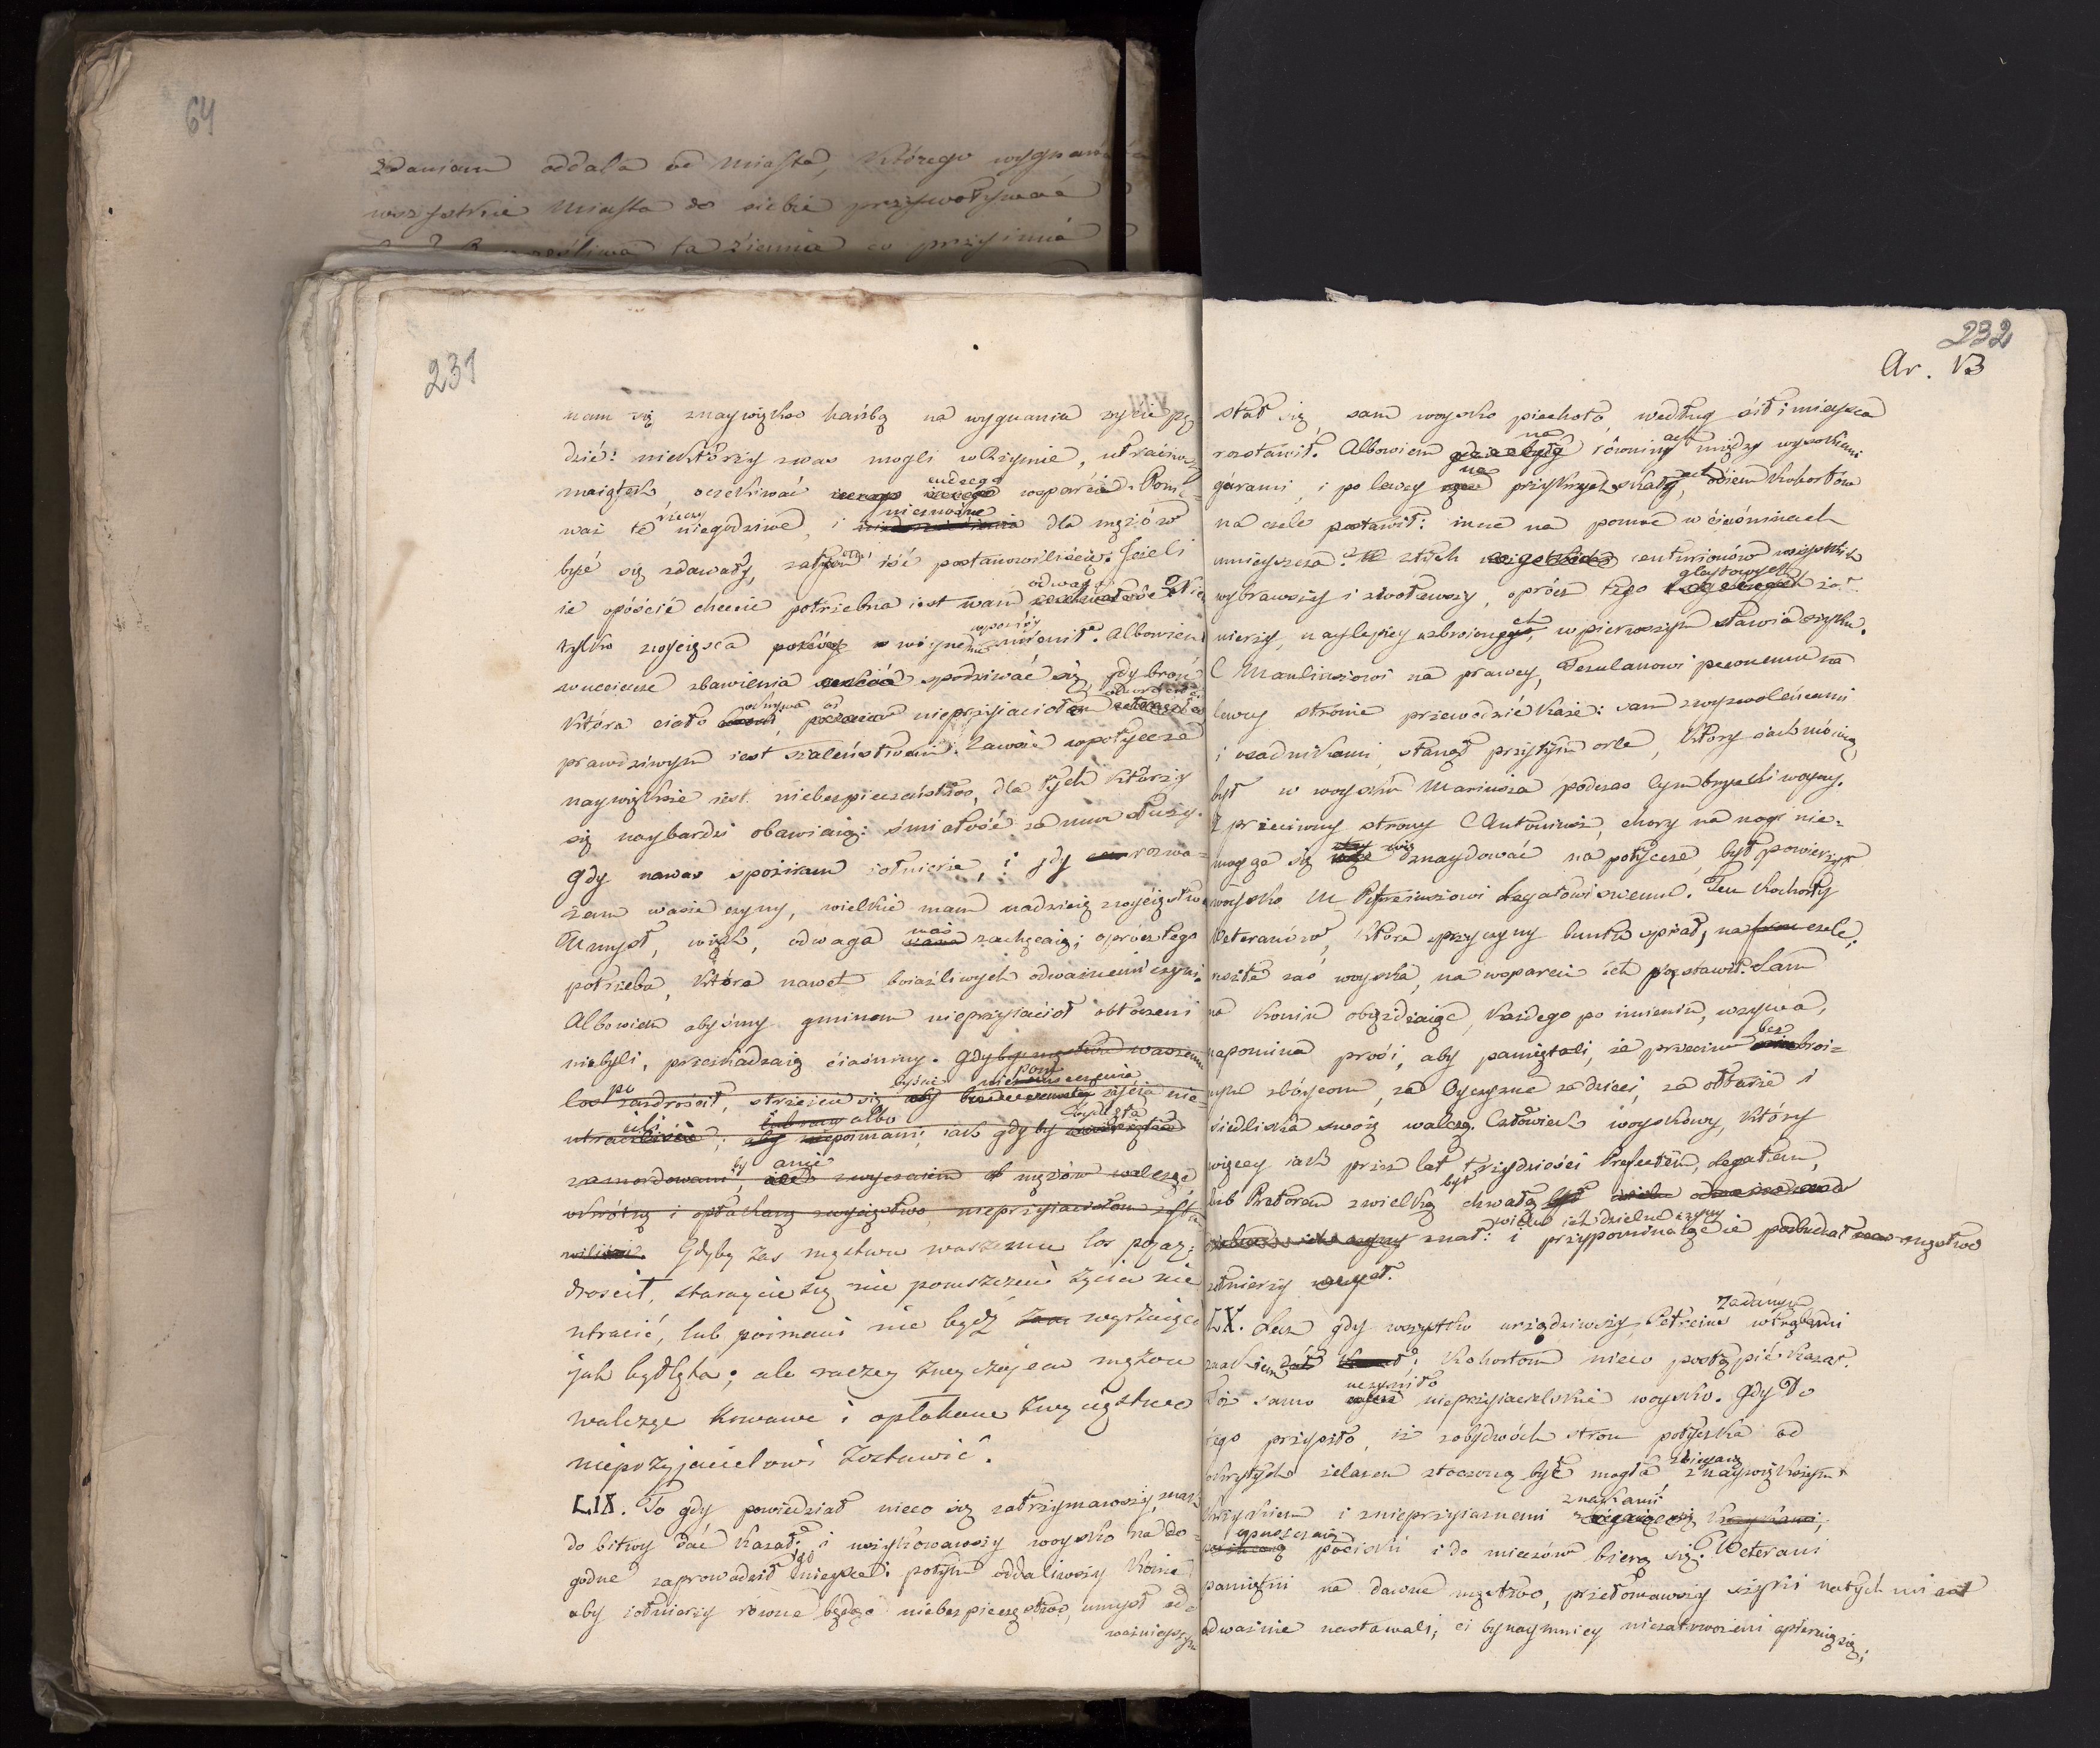 64
zdaniem oddala od Miasta, którego wygnańca
wszystkie Miasta do siebie przyswoływać
ta ziemia co przyimie
231
nam się znaywiększą hańbą na wygnaniu życie pę=
dzić! niektórzy zwas mogli w Rzymie, utraciwszy
maiątek, oczekiwać cudzego wsparcia. Ponie=
waż te rzeczy niegodziwe, i nieznośne dla mężów
być się zdawały, za tym iść postanowiliście. Jeżeli
ie opóścić chcecie potrzebna iest wam odwaga. Nikt
tylko zwyciężca pokóy w woynę zmienił. Albowiem
w ucieczce zbawienia spodziwać się, gdy broń
która ciało okrywa od nieprzyiaciół odwróci
prawdziwym iest szaleństwem. Zawsze w potyczce
naywiększe iest niebezpieczeństwo, dla tych którzy
się naybardzi obawiaią: śmiałość za mur służy.
Gdy na was spoziram żołnierze, i gdy rozwa=
żam wasze czyny, wielkie mam nadzieię zwycięstwa
Umysł, wiek, odwaga wasza zachęcaią; oprócz tego
potrzeba, która nawet boiaźliwych odważnemi czyni.
Albowiem abyśmy gminem nieprzyiaciół obtoczeni
niebyli, przeszkadzaią ciaśniny. Gdyby męstwu waszemu
los pozazdrościł, strzeżcie się byście niepomszczenie życia nie
utracili; albo poimani, iak gdyby bydlęta
zamordowani, by anie zwyczaiem mężów walcząc
wkrótką i opłakaną zwycięstwo nieprzyiaciołom zosta
wili. Gdyby zaś męstwu waszemu los pozaz=
drościł, staraycie się nie pomszczeni życia nie
utracić, lub poimani nie bydź wyrżnięci
jak bydlęta; ale raczey zwyczajem mężów
walcząc krwawe i opłakane zwycięstwo
nieprzyjacielowi zostawić.
LIX. To gdy powiedział nieco się zatrzymawszy, znak
do bitwy dać kazał: i uszykowawszy woysko na do=
godne zaprowadził miejsce: potym oddaliwszy konie
aby żołnierzy równe będąc niebezpieczeństwo, umysł od=
ważniejszym
232
Ar. 13
stał się, sam woysko piechotą, według sił i miejsca
rozstawił. Albowiem na równinę między wysokiemi
górami, i po lewey na przykrych skałach, ośiem Kohortów
na czele postawił: inne na pomoc w ciaśninach
umieszcza. z tych centurionów wszystkich
wybrawszy i zwoławszy, oprócz tego żoł=
nierzy, naylepiey uzbroionych, w pierwszym stawia szyku.
C Manliuszowi na prawey, Fesulanowi pewnemu na
lewey stronie przewodzić każe: sam z wyzwoleńcami
i osadnikami, stanął przy tym orle, który iak mówią,
był w woysku Mariusza podczas Cymbryskiey woyny.
Z przeciwney strony C Antoniusz, chory na nogi nie=
mogąc się znaydować na potyczce, był powierzył
woysko M Petreiuszowi Legatowi swemu. Ten Kohorty
Weteranów, które z przyczyny buntu spisał, na czele,
resztę zaś woyska, na wsparcie ich postawił. Sam
na koniu obieżdżaiąc, każdego po imieniu, wzywa,
napomina prosi, aby pamiętali, że przeciw bezbroi=
nym zbóycom, za Oyczyznę za dzieci, za ołtarze i
siedliska swoię walczą. Człowiek woyskowy, który
więcey iak przez lat trzydzieści Prefectem, Legatem,
lub Pretorem zwielką chwałą był
wielu ich dzielne czyny znał: i przypominaiąc ie męstwo
żołnierzy
LX. Lecz gdy wszystko urządziwszy Petreius
znak Kohortom nieco postąpić kazał.
Toż samo uczyniło nieprzyiacielskie woysko. Gdy do
tego przyszło, iż zobydwóch stron potyczka od
okrytych żelazem stoczoną być mogła znaywiększym
krzykiem i znieprzyiaznemi znakami
opuszczaią pociski i do mieczów biorą się. Weterani
pamiętni na dawne męstwo, przełomawszy szyki natychmiast
odważnie nastawali, ci bynaymniey niezatrwożeni opieraią się;